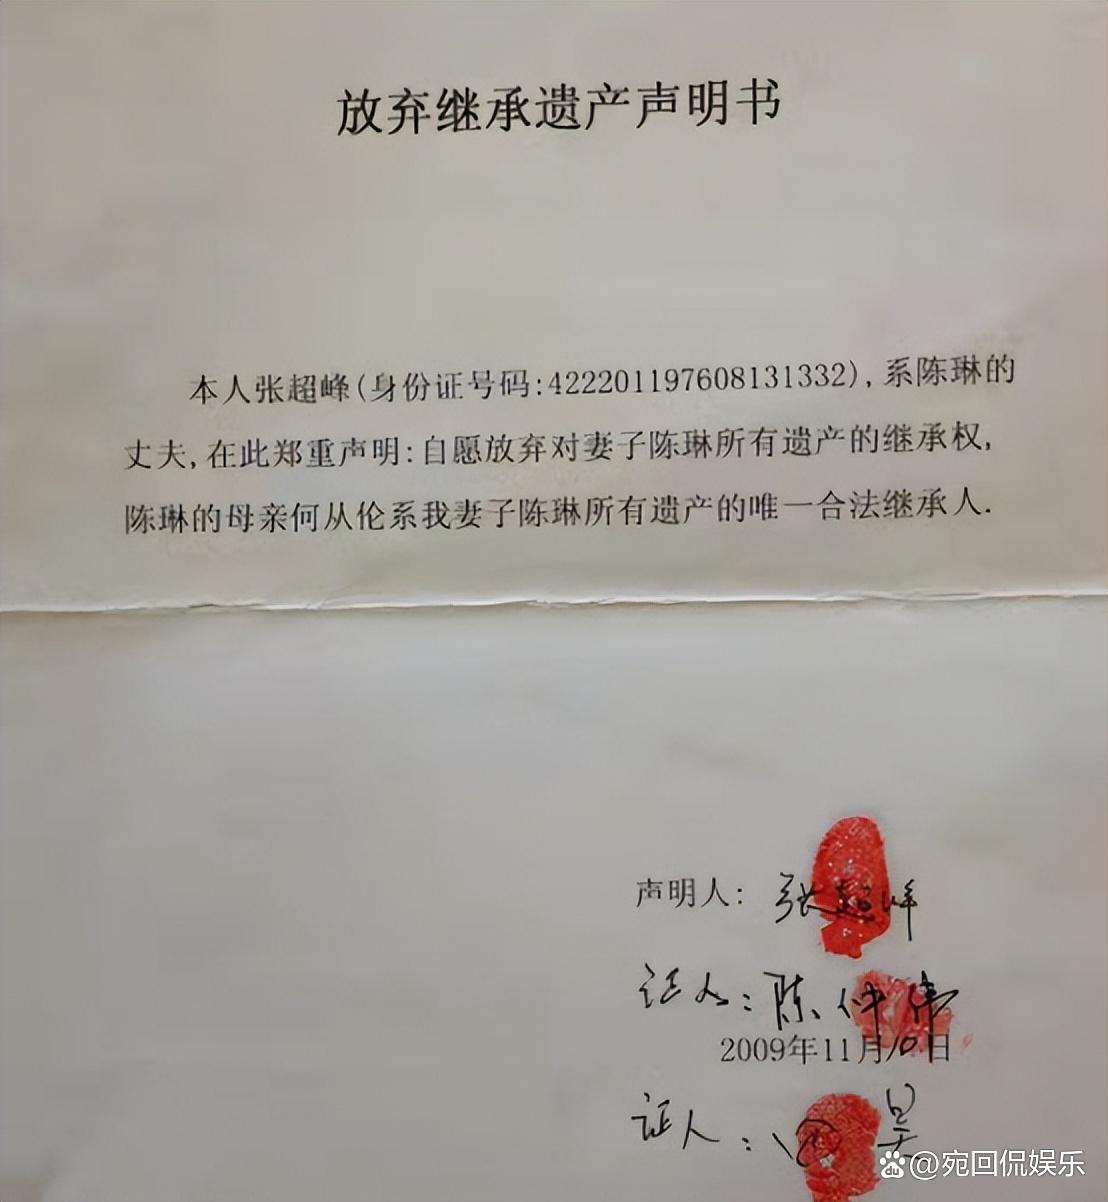 放弃继承遗产声明书
本人张超峰(身份证号码:422201197608131332),系陈琳的
丈夫,在此郑重声明:自愿放弃对妻子陈琳所有遗产的继承权,
陈琳的母亲何从伦系我妻子陈琳所有遗产的唯一合法继承人.
声明人: 张超峰
证人: 陈仲伟
2009年11月10日
证人: 昊
du @宛回侃娱乐